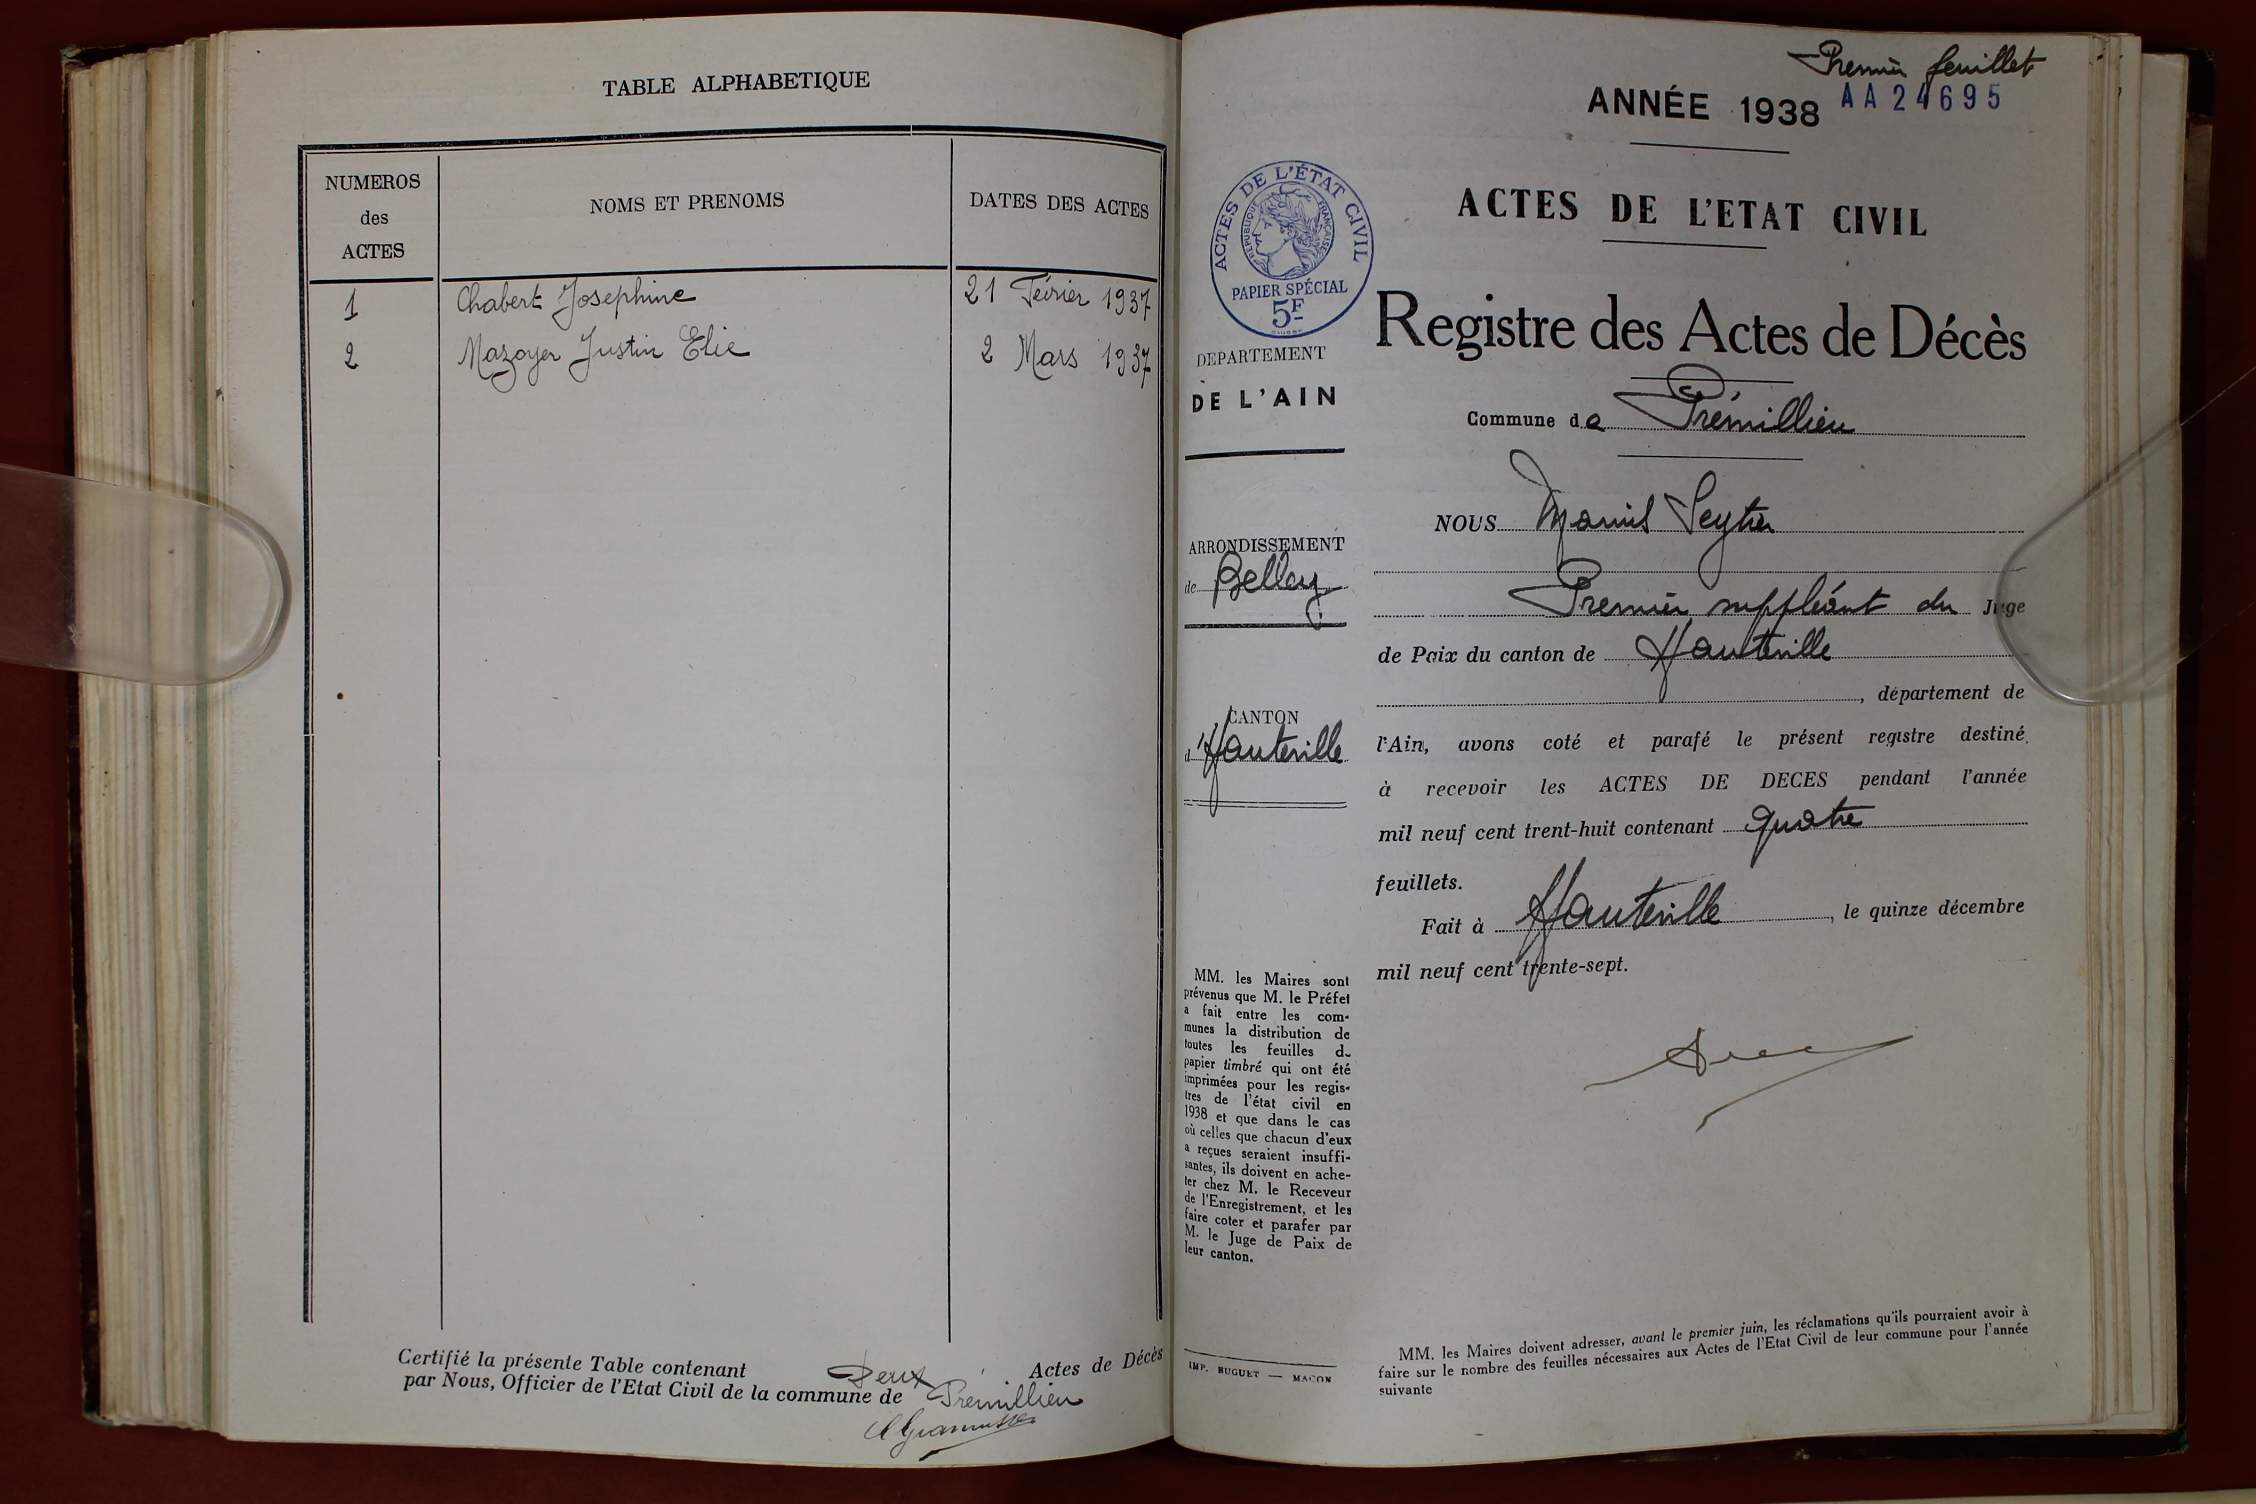 TABLE ALPHABETIQUE
NUMEROS
des
ACTES
NOMS ET PRENOMS
DATES DES ACTES
1 Chabert Josephine 21 Février 1937
2 Mazoyer Justin Elie 2 Mars 1937
Certifié la présente Table contenant Deux Actes de Décès
par Nous, Officier de l'Etat Civil de la commune de Prémillieu
Premier feuillet
ANNÉE 1938 AA24695
ACTES DE L'ÉTAT CIVIL
RÉPUBLIQUE FRANÇAISE
PAPIER SPÉCIAL
5F
DEPARTEMENT
DE L'AIN
ARRONDISSEMENT
de Belley
CANTON
d'Hauteville
MM. les Maires sont
prévenus que M. le Préfet
a fait entre les com-
munes la distribution de
toutes les feuilles de
papier timbré qui ont été
imprimées pour les regis-
tres de l'état civil en
1938 et que dans le cas
où celles que chacun d'eux
a reçues seraient insuffi-
santes, ils doivent en ache-
ter chez M. le Receveur
de l'Enregistrement, et les
faire coter et parafer par
M. le Juge de Paix de
leur canton.
IMP. BUGUET — MACON
ACTES DE L'ETAT CIVIL
Registre des Actes de Décès
Commune de Prémillieu
NOUS Marius
Premier suppléant du Juge
de Paix du canton de Hauteville
, département de
l'Ain, avons coté et parafé le présent registre destiné
à recevoir les ACTES DE DECES pendant l'année
mil neuf cent trent-huit contenant quatre
feuillets.
Fait à Hauteville, le quinze décembre
mil neuf cent trente-sept.
MM. les Maires doivent adresser, avant le premier juin, les réclamations qu'ils pourraient avoir à
faire sur le nombre des feuilles nécessaires aux Actes de l'Etat Civil de leur commune pour l'année
suivante